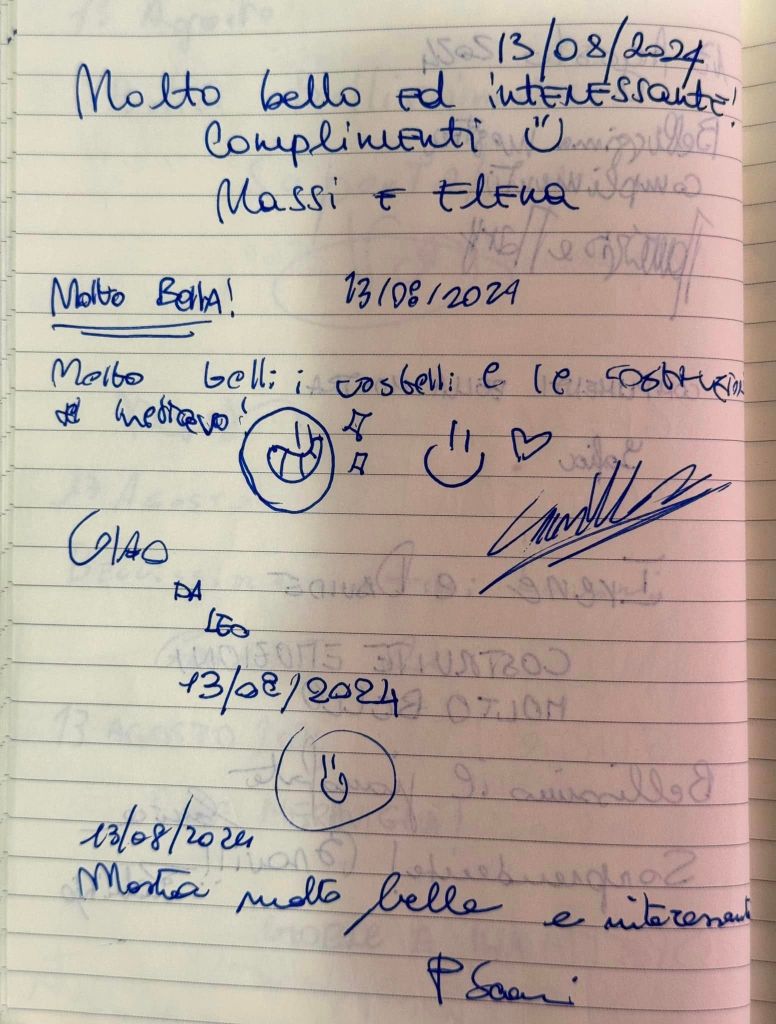 13/08/2024
Molto bello ed interessante!
Complimenti
Massi e Elena
Molto Bella! 13/08/2024
Molto belli i castelli e le costruzioni
medioevo!
CIAO
DA
LEO
13/08/2024
13/08/2024
Mostra molto bella e interessante